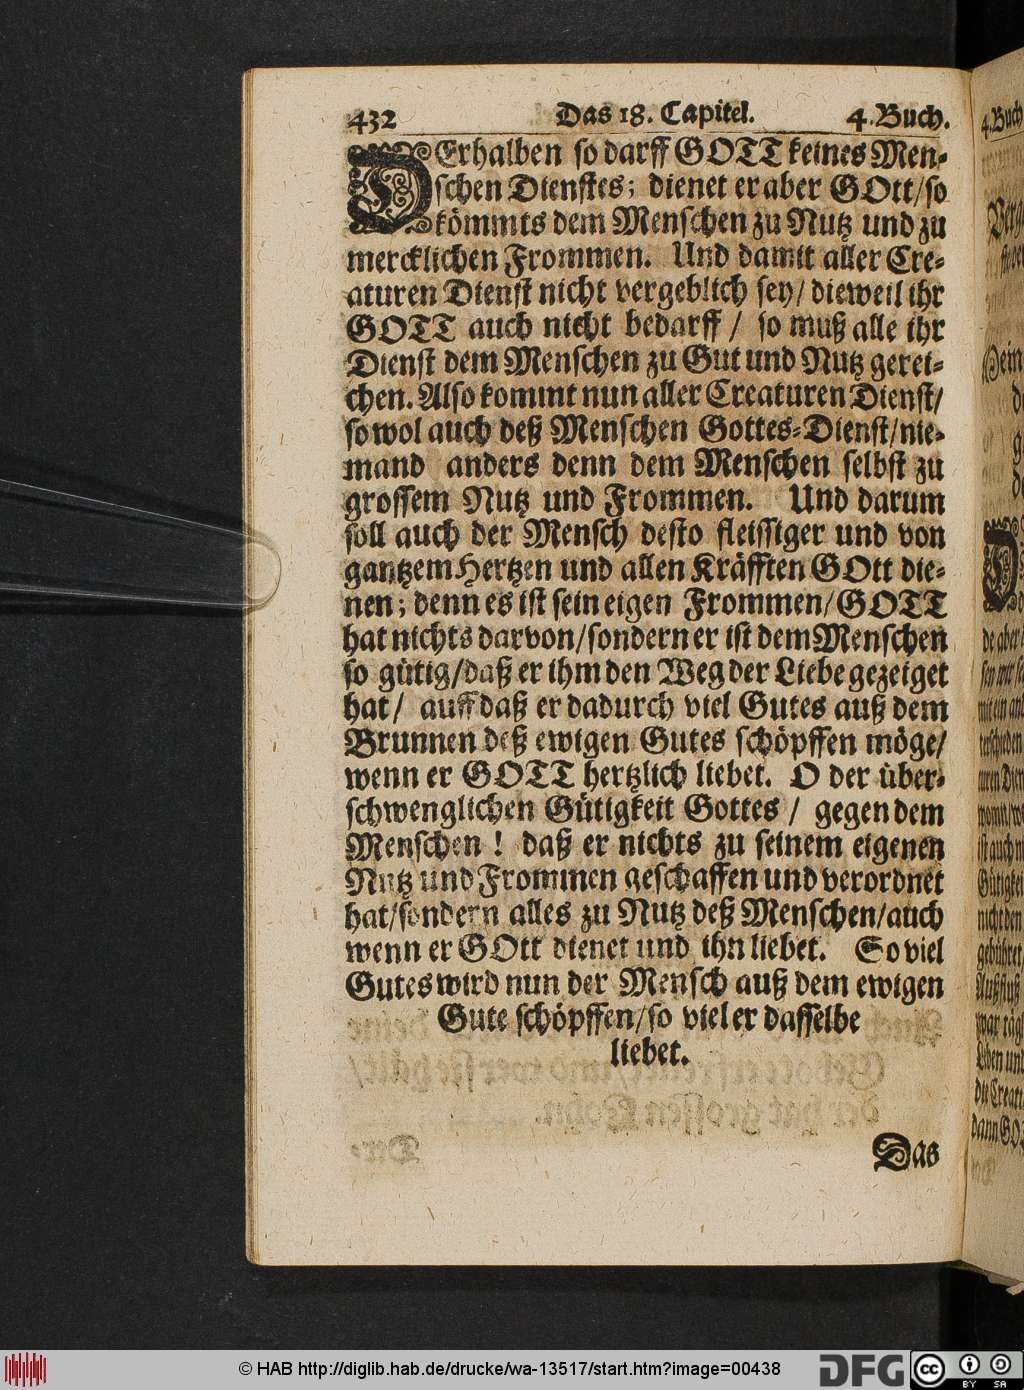 432 Das 18. Capitel. 4. Buch.
DErhalben so darff GOTT keines Men-
schen Dienstes; dienet er aber GOtt/so
kömmts dem Menschen zu Nutz und zu
mercklichen Frommen. Und damit aller Cre-
aturen Dienst nicht vergeblich sey/ dieweil ihr
GOTT auch nicht bedarff / so muß alle ihr
Dienst dem Menschen zu Gut und Nutz gerei-
chen. Also kommt nun aller Creaturen Dienst/
so wol auch deß Menschen Gottes-Dienst/nie-
mand anders denn dem Menschen selbst zu
grossem Nutz und Frommen. Und darum
soll auch der Mensch desto fleissiger und von
gantzem Hertzen und allen Kräfften GOtt die-
nen; denn es ist sein eigen Frommen/GOTT
hat nichts darvon/sondern er ist dem Menschen
so gütig/daß er ihm den Weg der Liebe gezeiget
hat/ auff daß er dadurch viel Gutes auß dem
Brunnen deß ewigen Gutes schöpffen möge/
wenn er GOTT hertzlich liebet. O der über-
schwenglichen Gütigkeit Gottes / gegen dem
Menschen ! daß er nichts zu seinem eigenen
Nutz und Frommen geschaffen und verordnet
hat/sondern alles zu Nutz deß Menschen/auch
wenn er GOtt dienet und ihn liebet. So viel
Gutes wird nun der Mensch auß dem ewigen
Gute schöpffen/so viel er dasselbe
liebet.
Das
4. Buch
© HAB http://diglib.hab.de/drucke/wa-13517/start.htm?image=00438
DFG
cc BY SA